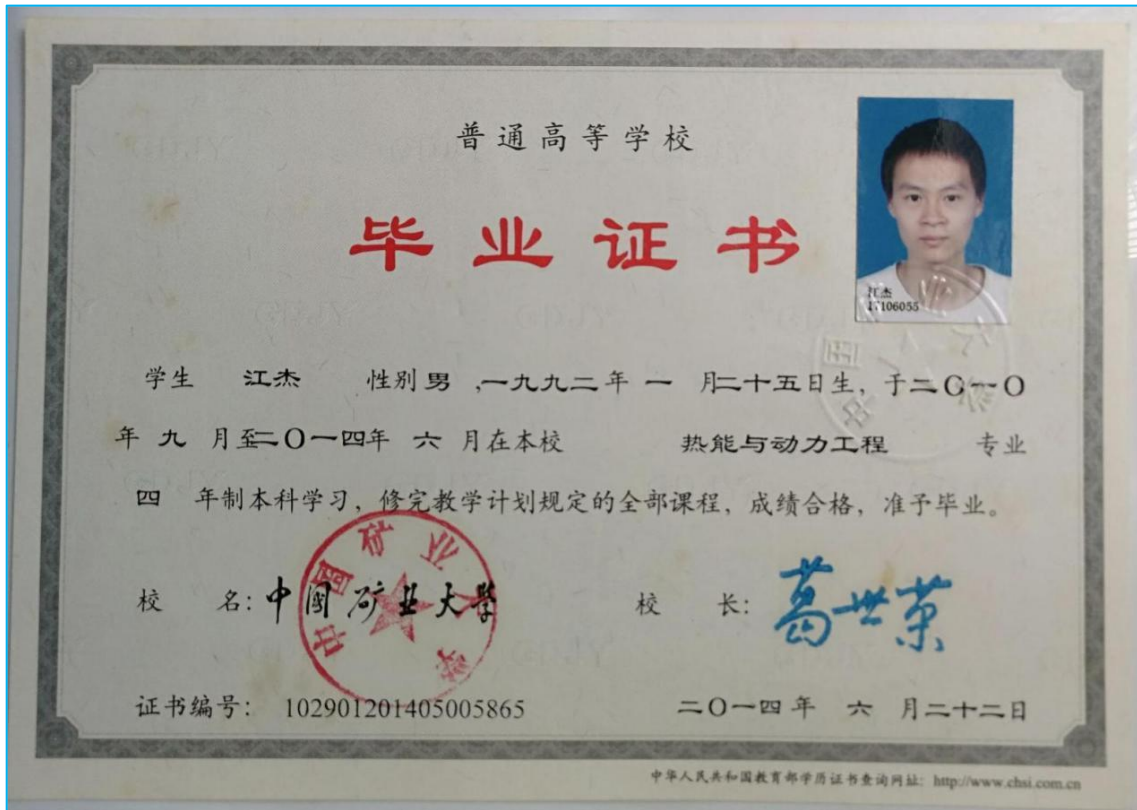 普通高等学校
毕业证书
江杰
17106055
学生 江杰 性别男,一九九二年 一 月二十五日生,于二〇一〇
年 九 月至二〇一四年 六 月在本校 热能与动力工程 专业
四 年制本科学习,修完教学计划规定的全部课程,成绩合格,准予毕业。
校 名:中国矿业大学 校 长:葛世荣
中国矿业大学
证书编号: 102901201405005865 二〇一四年 六 月二十二日
中华人民共和国教育部学历证书查询网址: http://www.chsi.com.cn